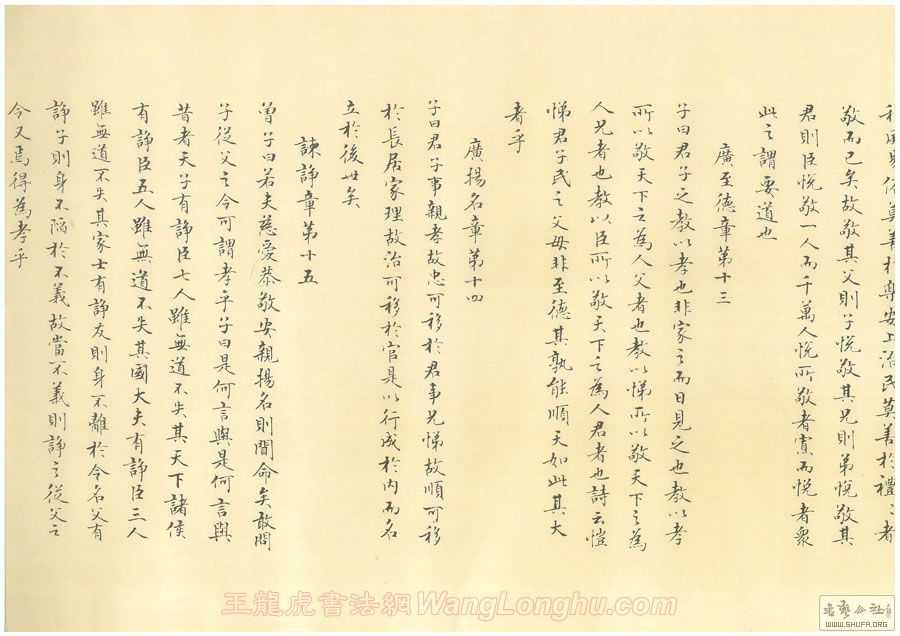 俗莫善於樂安上治民莫善於禮〻者
敬而已矣故敬其父則子悅敬其兄則弟悅敬其
君則臣悅敬一人而千萬人悅所敬者寡而悅者衆
此之謂要道也
廣至德章第十三
子曰君子之教以孝也非家之而日見之也教以孝
所以敬天下之為人父者也教以悌所以敬天下之為
人兄者也教以臣所以敬天下之為人君者也詩云愷
悌君子民之父母非至德其孰能順天如此其大
者乎
廣揚名章第十四
子曰君子事親孝故忠可移於君事兄悌故順可移
於長居家理故治可移於官是以行成於內而名
立於後世矣
諫諍章第十五
曾子曰若夫慈愛恭敬安親揚名則聞命矣敢問
子從父之令可謂孝乎子曰是何言與是何言與
昔者天子有諍臣七人雖無道不失其天下諸侯
有諍臣五人雖無道不失其國大夫有諍臣三人
雖無道不失其家士有諍友則身不離於令名父有
諍子則身不陷於不義故當不義則諍之從父之
令又焉得為孝乎
王龍虎書法網WangLonghu.com
書藝公社
WWW.SHUFA.ORG